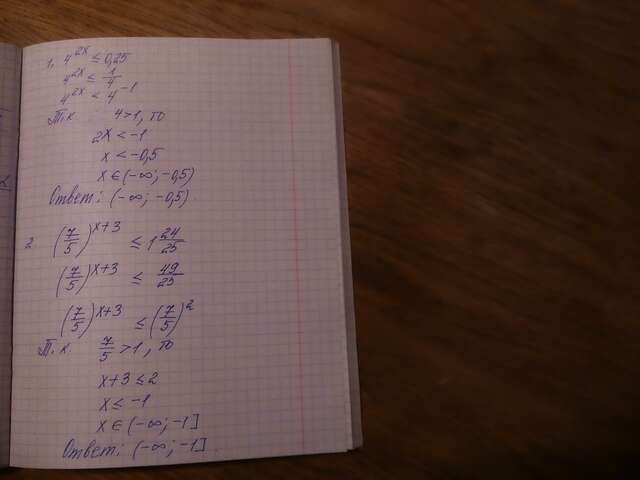 1. 4^2x ≤ 0,25
4^2x ≤ 1/4
4^2x < 4^-1
Т.к 4>1, то
2x < -1
x < -0,5
x ∈ (-∞; -0,5)
Ответ: (-∞; -0,5)
2 (7/5)^x+3 ≤ 1 24/25
(7/5)^x+3 ≤ 49/25
(7/5)^x+3 ≤ (7/5)^2
Т.к 7/5 >1, то
x+3 ≤ 2
x ≤ -1
x ∈ (-∞; -1]
Ответ: (-∞; -1]